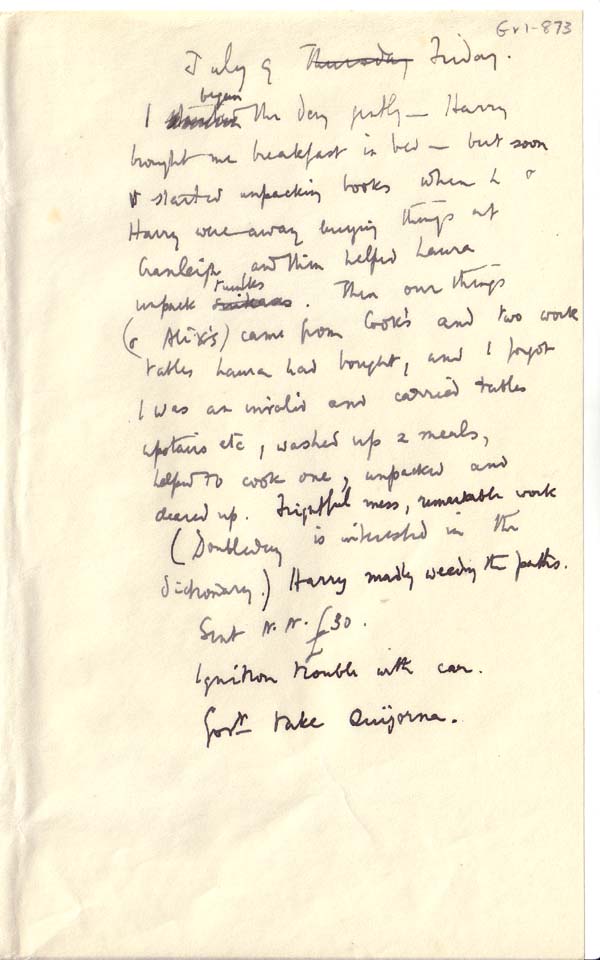 Gr1-873
July 9 Thursday Friday.
began
I started the day gently – Harry
brought me breakfast in bed – but soon
started unpacking books when L &
Harry were away buying things at
Cranleigh and then helped Laura
trunks
unpack suitcases. Then our things
(& Alix's) came from Cook's and two work
tables Laura had bought, and I forgot
I was an invalid and carried tables
upstairs etc, washed up 2 meals,
helped to cook one, unpacked and
cleared up. Frightful mess, remarkable work
(Doubleday is interested in the
dictionary.) Harry madly weeding the paths.
Sent N.N. £30.
Ignition trouble with car.
Govt take Quijorna.